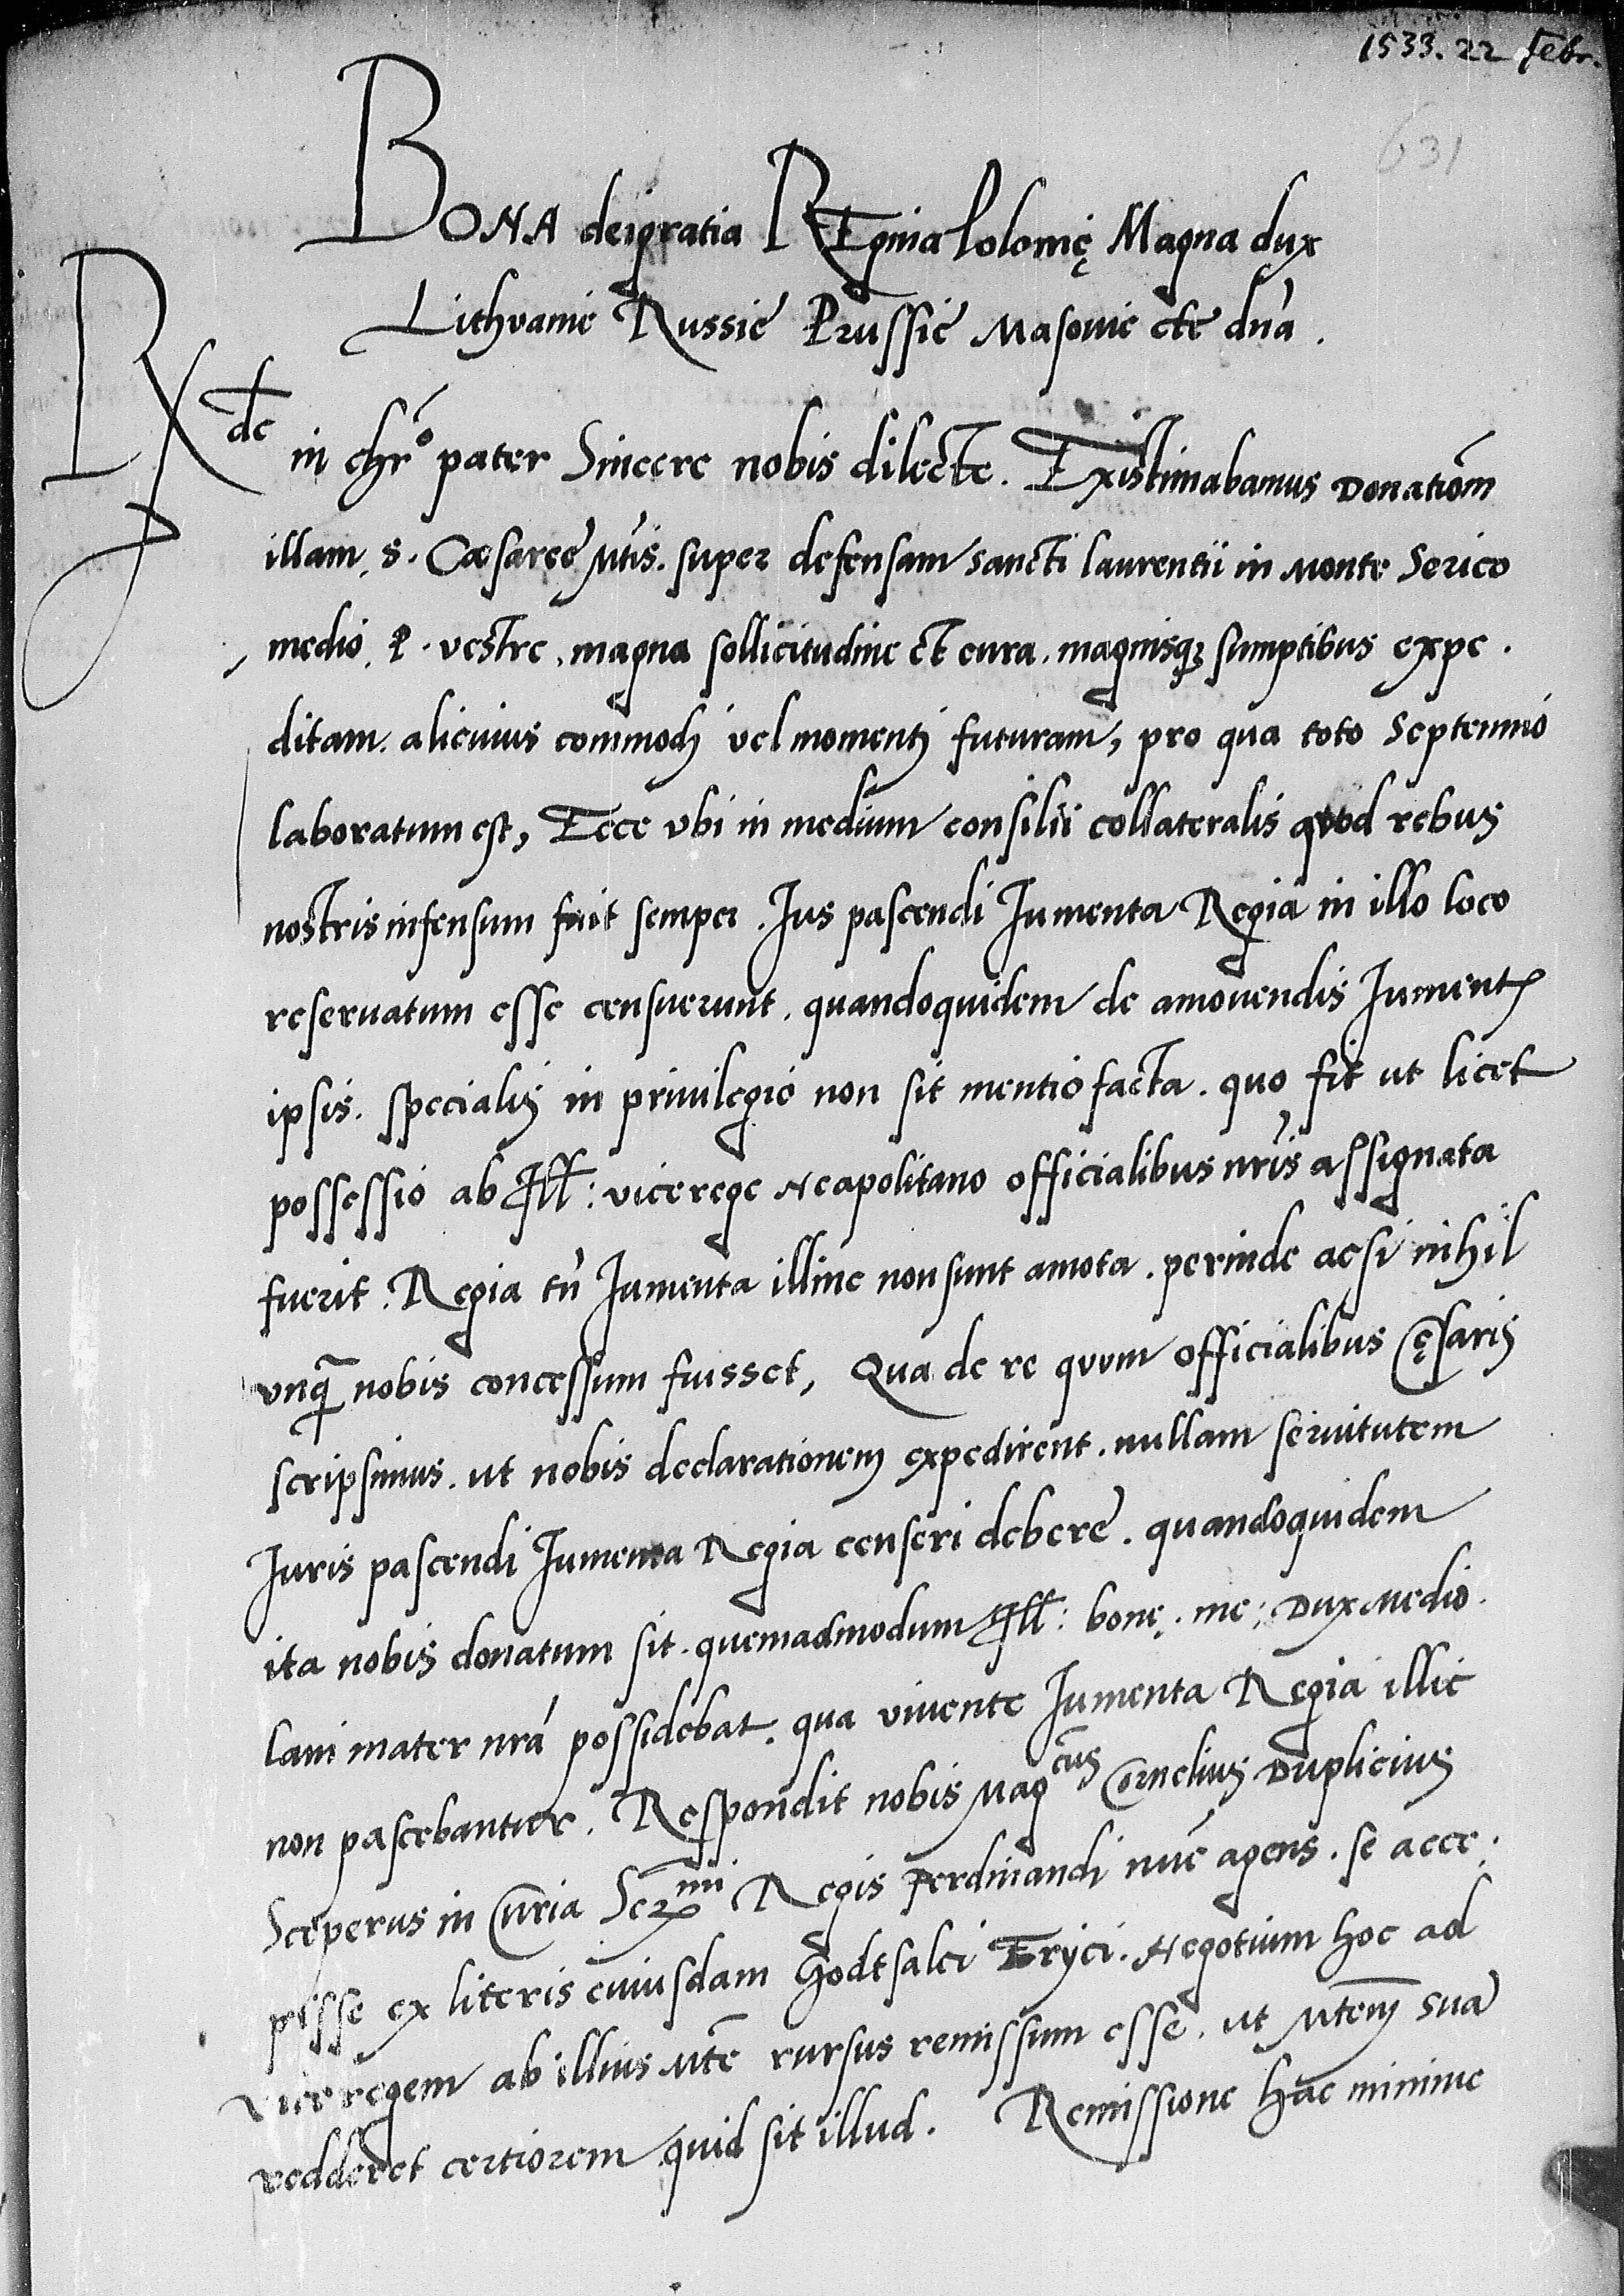 1533. 22 Febr.
631
BONA dei gratia REgina Polonię Magna dux
Lithvanie Russie Prussie Masovie etc dña.
Rde in chro pater Sincere nobis dilecte. Existimabamus Donatiom̃
illam. S. Cæsareę Mtis. super defensam Sancti laurentii in Monte Serico
medio. P. vestre. magna sollicitudine et cura. magnisqꝫ sumptibus expe.
ditam. alicuius commodj vel momentj futuram, pro qua toto Septennio
laboratum est, Ecce vbi in medium consilii collateralis quod rebus
nostris infensum fuit semper. Jus pascendi Jumenta Regia in illo loco
reseruatum esse censuerunt. quandoquidem de amouendis Jumentꝭ
ipsis. specialis in priuilegio non sit mentio facta. quo fit ut licet
possessio ab Ill: vicerege Neapolitano officialibus nris assignata
fuerit. Regia tñ Jumenta illinc non sunt amota. perinde acsi nihil
vnq̃ nobis concessum fuisset, Qua de re quum officialibus Cęsaris
scripsimus. ut nobis declarationem expedirent. nullam seruitutem
Juris pascendi Jumenta Regia censeri debere. quandoquidem
ita nobis donatum sit. quemadmodum Ill: bonę. me: Dux Medio.
lani mater nra possidebat. qua viuente Jumenta Regia illic
non pascebantur. Respondit nobis Magcus Cornelius Duplicius
Sceperus in Curia Sermi Regis Ferdinandi nũc agens. se acce.
pisse ex literis cuiusdam Godtsalci Eryci. Negotium hoc ad
viceregem ab illius Mte rursus remissum esse. ut Mtem sua
redderet certiorem quid sit illud. Remissione hac minime